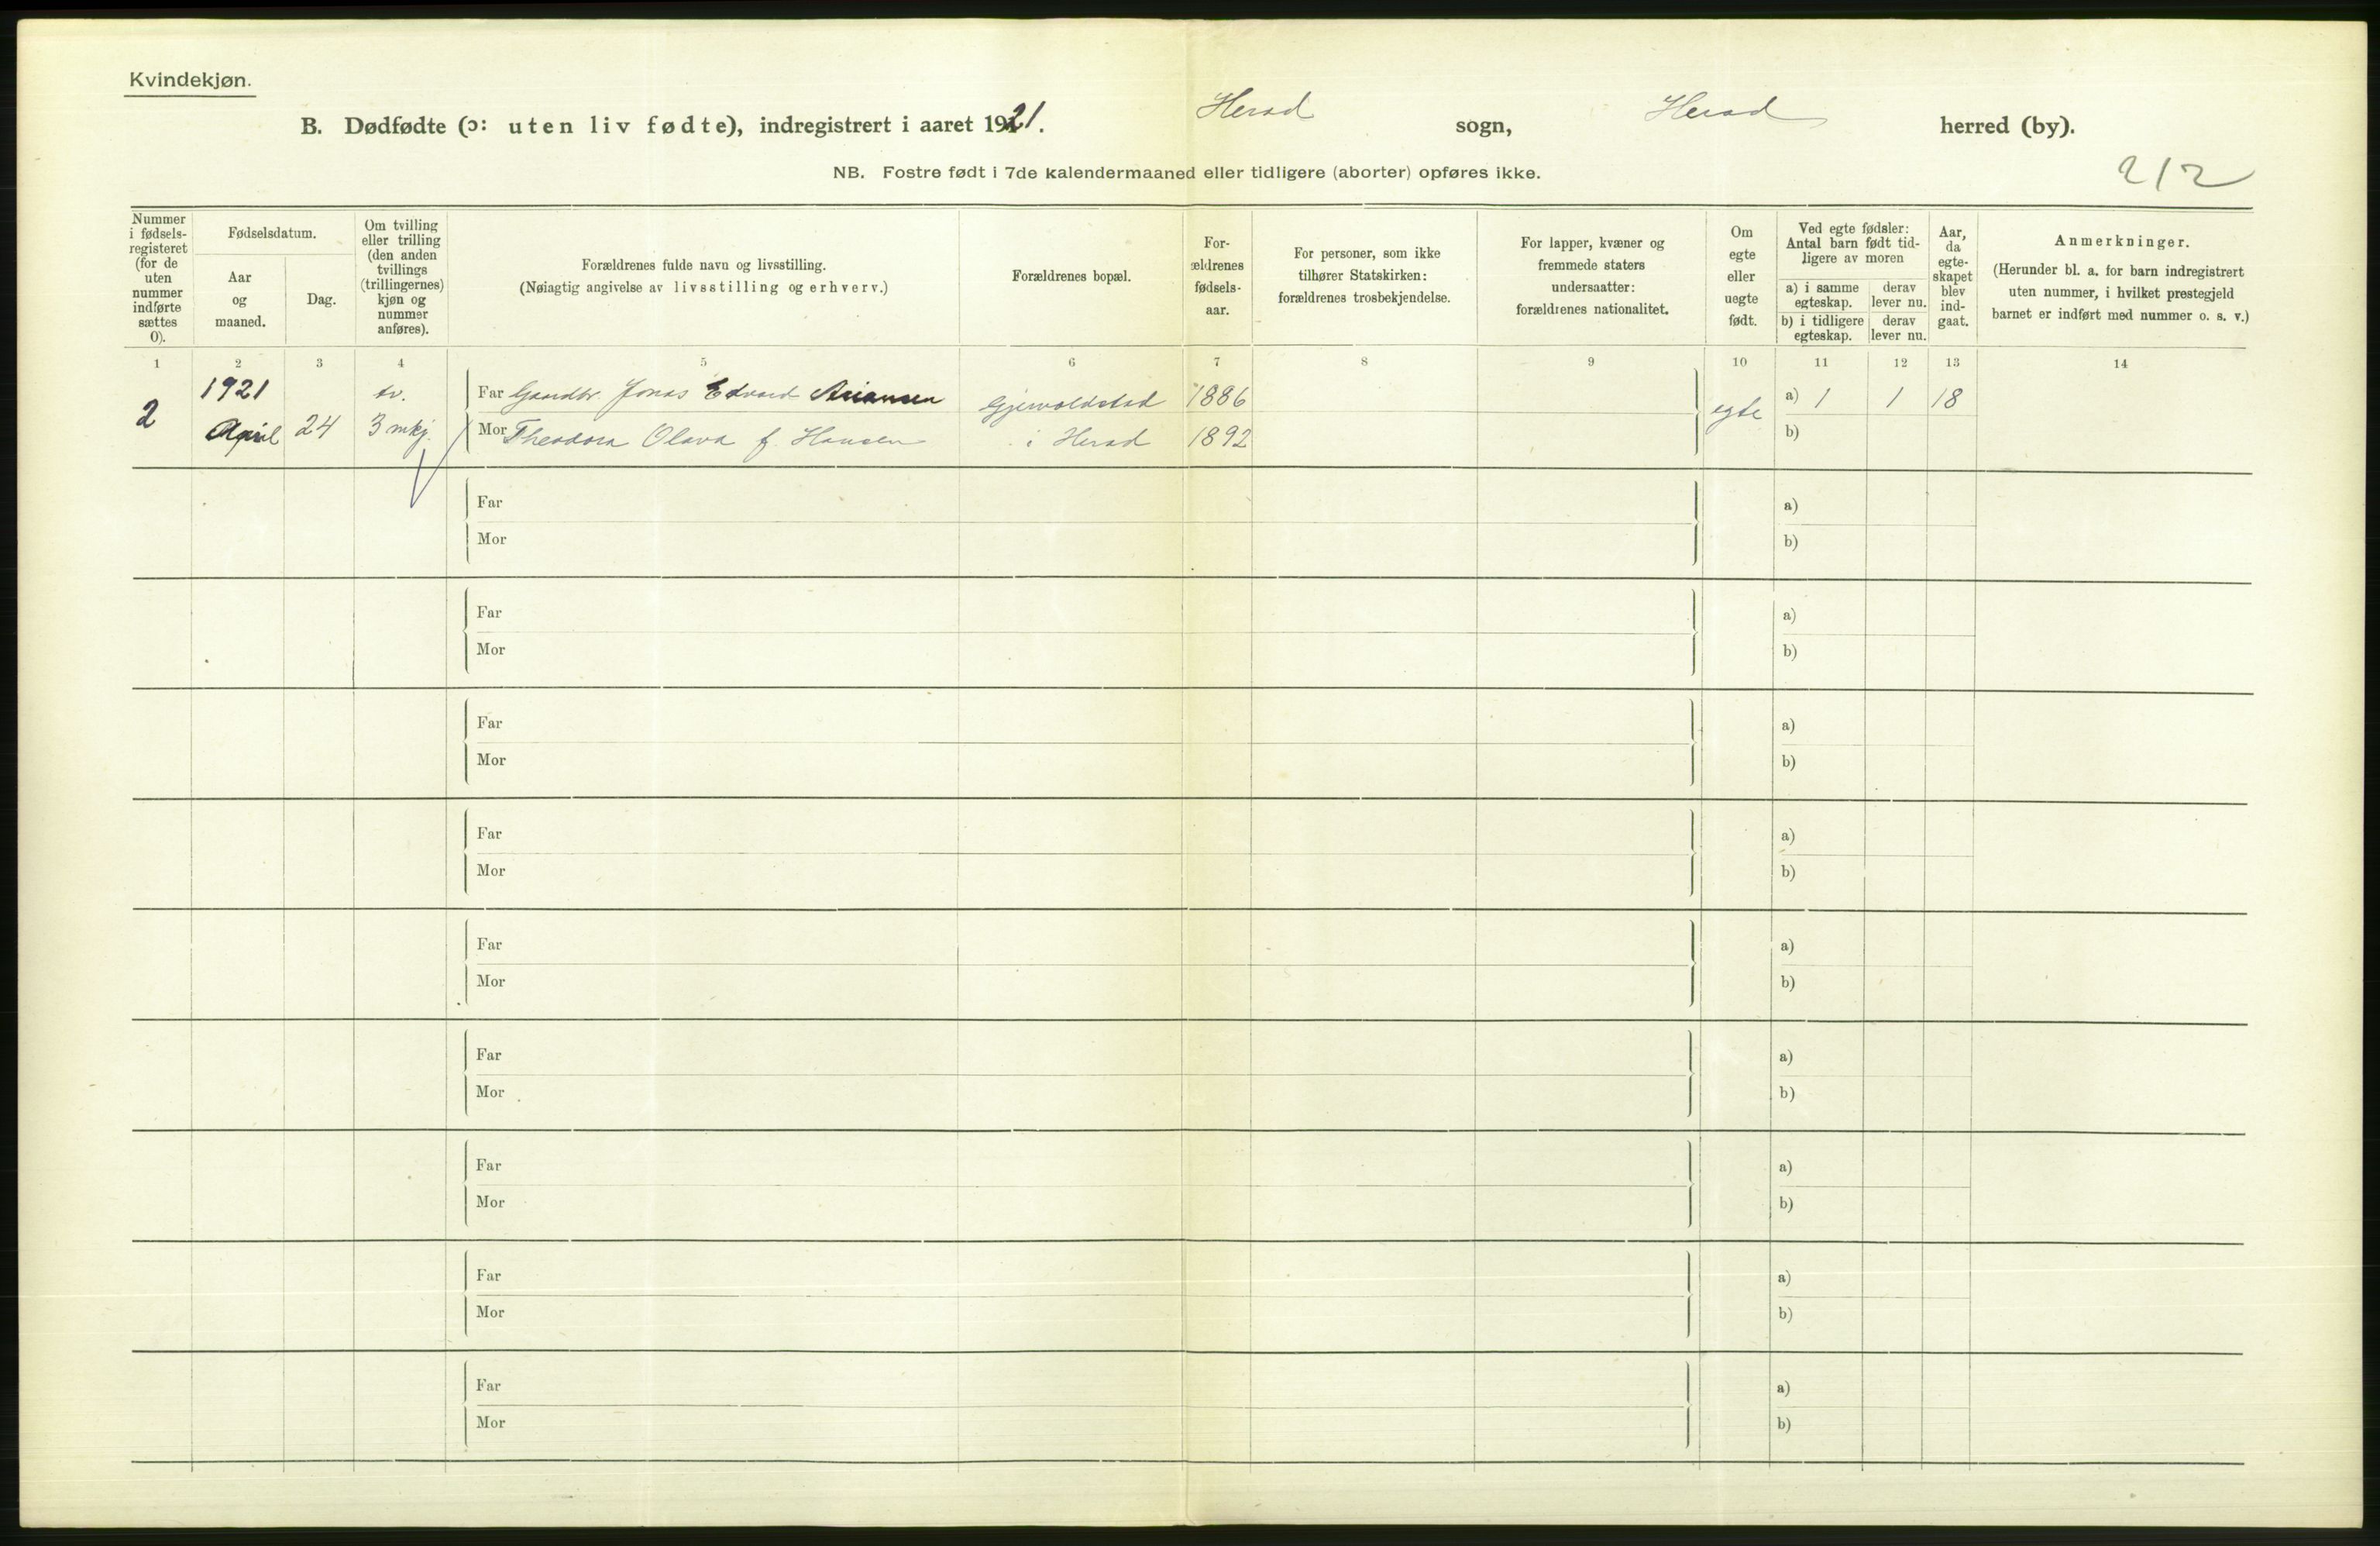 Kvindekjøn.
B. Dødfødte (ɔ: uten liv fødte), indregistrert i aaret 1921. Herad sogn, Herad herred (by).
NB. Fostre født i 7de kalendermaaned eller tidligere (aborter) opføres ikke.
212
Nummer
i fødsels-
registeret
(for de
uten
nummer
indførte
sættes
0).
Fødselsdatum.
Aar
og
maaned.
Dag.
Om tvilling
eller trilling
(den anden
tvillings
(trillingernes)
kjøn og
nummer
anføres).
Forældrenes fulde navn og livsstilling.
(Nøiagtig angivelse av livsstilling og erhverv.)
Forældrenes bopæl.
For-
ældrenes
fødsels-
aar.
For personer, som ikke
tilhører Statskirken:
forældrenes trosbekjendelse.
For lapper, kvæner og
fremmede staters
undersaatter:
forældrenes nationalitet.
Om
egte
eller
uegte
født.
Ved egte fødsler:
Antal barn født tid-
ligere av moren
a) i samme
egteskap.
derav
lever nu.
b) i tidligere
egteskap.
derav
lever nu.
Aar,
da
egte-
skapet
blev
ind-
gaat.
Anmerkninger.
(Herunder bl. a. for barn indregistrert
uten nummer, i hvilket prestegjeld
barnet er indført med nummer o. s. v.)
1 2 3 4 5 6 7 8 9 10 11 12 13 14
1921 tv. Far Gaardbr. Jonas Edvard 1886 a) 1 1 18
2 April 24 3 mkj. Mor Theodora Olava f. Hansen i Herad 1892 egte b)
Far a)
Mor b)
Far a)
Mor b)
Far a)
Mor b)
Far a)
Mor b)
Far a)
Mor b)
Far a)
Mor b)
Far a)
Mor b)
Far a)
Mor b)
Far a)
Mor b)